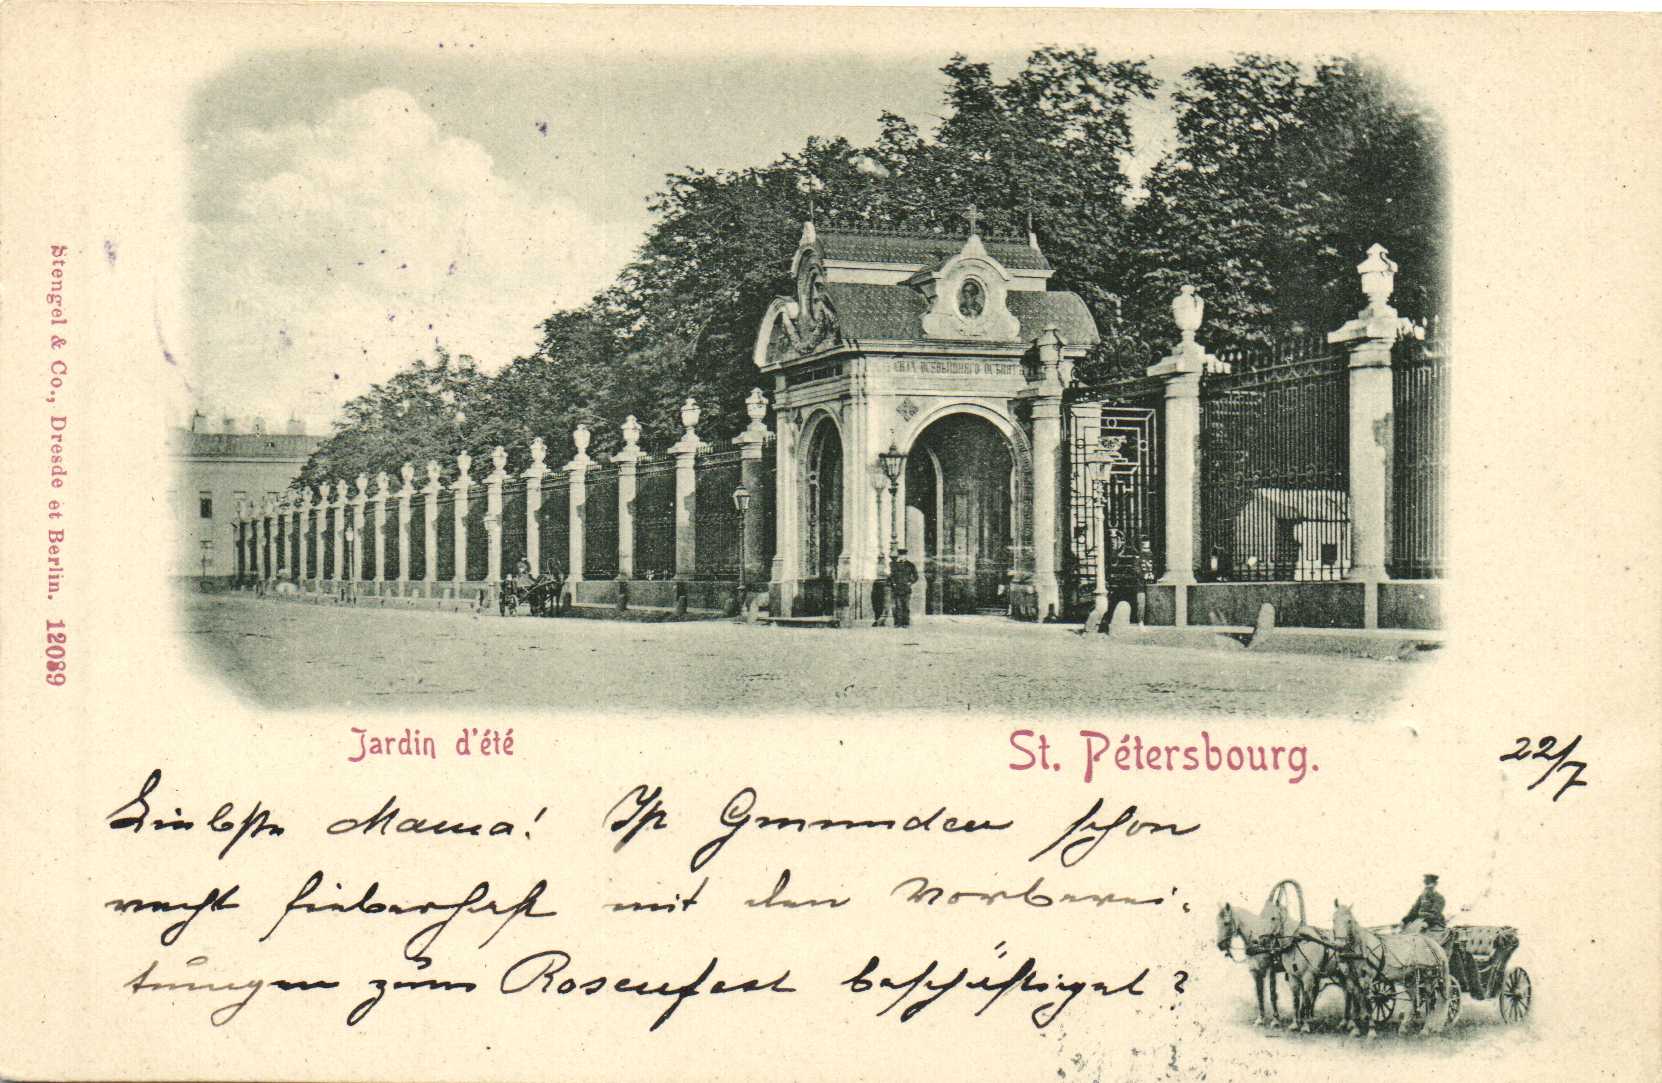 Stengel & Co., Dresde et Berlin. 12089
Jardin d'été
St. Pétersbourg.
22/7
Liebste Mama! Ist Gmunden schon
recht fieberhaft mit den Vorberei-
tungen zum Rosenfest beschäftigt?